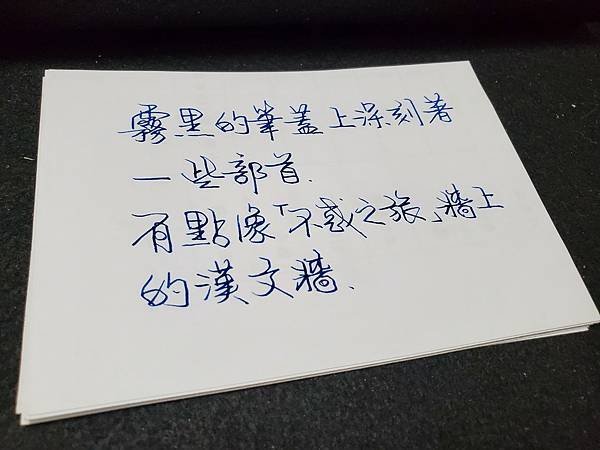 霧黑的筆蓋上深刻著
一些部首.
有點像「不惑之旅」牆上
的漢文牆.